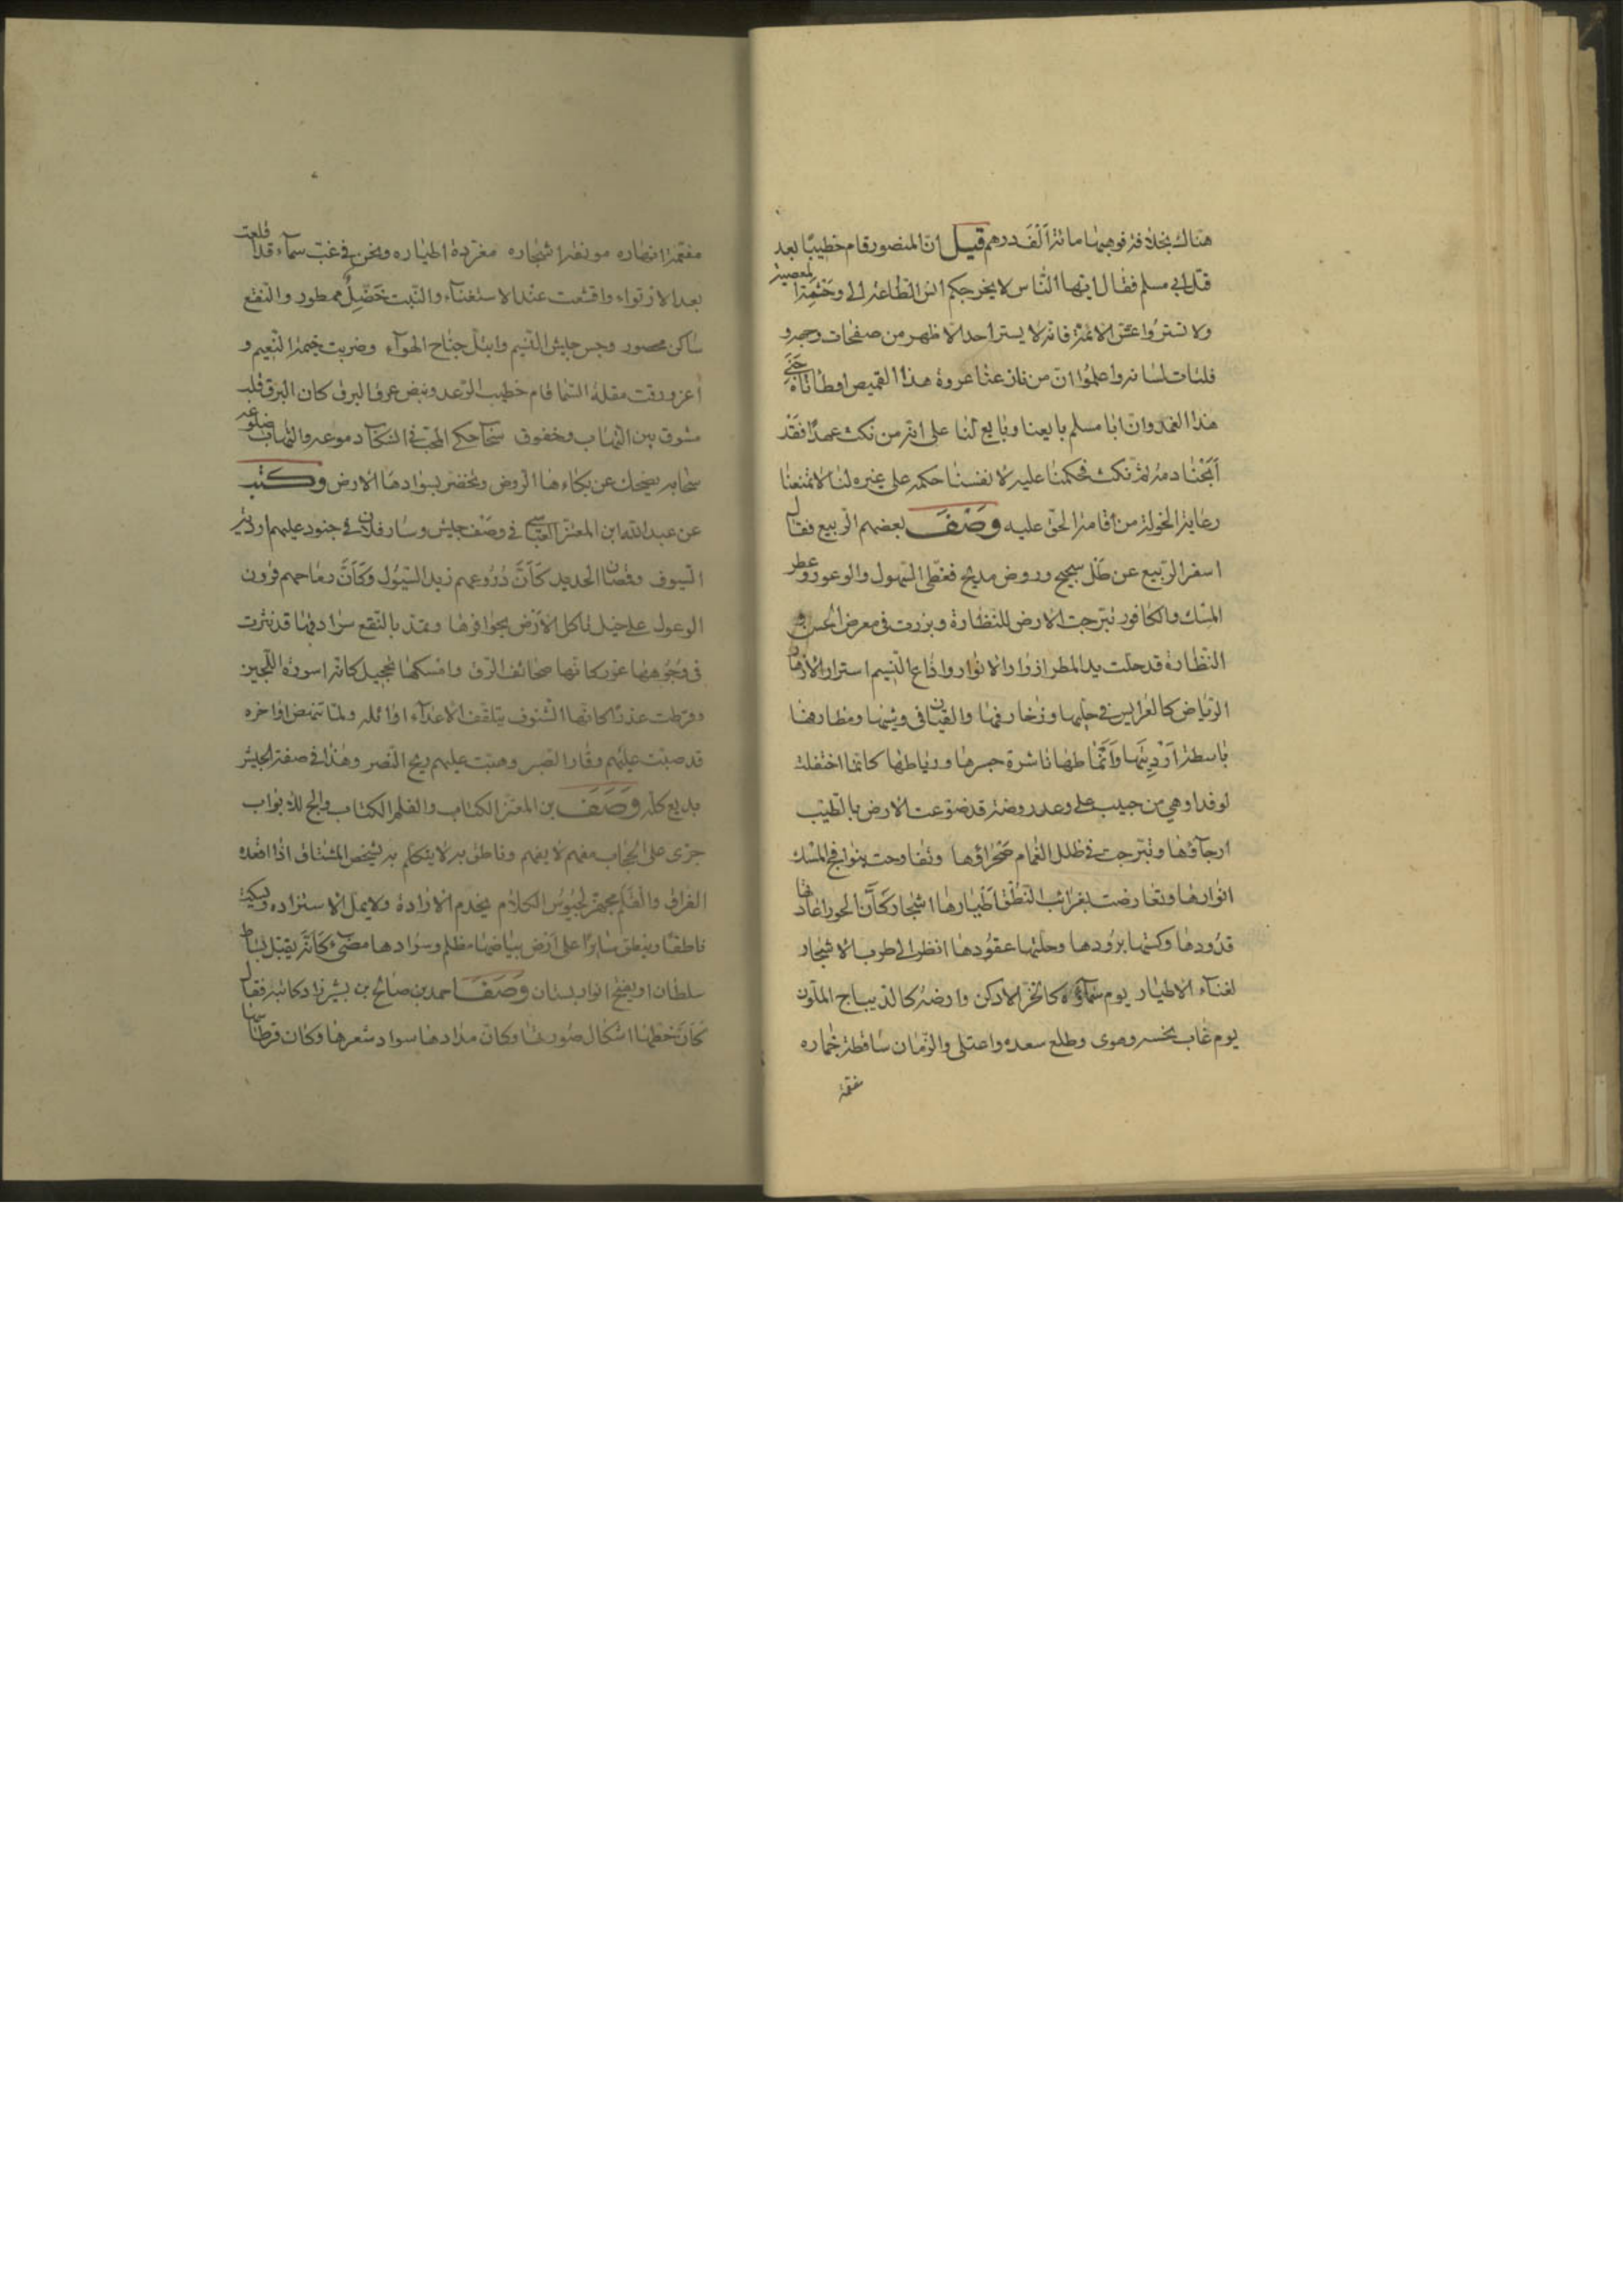 هناك بخلافة فوهبها مائة ألف درهم قيل ان المنصور قام خطيبا بعد
قتل ابي مسلم فقال ايها الناس لا يخرجكم انس الطاعة الى وحشة المعصية
ولا تستروا غش الائمة فانه لا يستر احد الا ظهر من صفحات وجهه و
فلتات لسانه واعلموا ان من نازعنا عروة هذا القميص اوطاناه خبي
هذا الغمد وان ابا مسلم بايعنا وبايع لنا على انه من نكث عهدا فقد
أبحنا دمه ثم نكث فحكمنا عليه لانفسنا حكمه على غيره لنا لا تمنعنا
رعاية الخولة من اقامة الحق عليه وَصَفَ بعضهم الربيع فقال
اسفر الربيع عن ظل سجسج وروض مدبج فغطى السهول والوعور وعطر
المسك والكافور تبرجت الارض للنظارة وبرزت في معرض الحسن و
النظارة قد حلت يد المطر ازرار الانوار واذاع النسيم اسرار الأزهار
الرياض كالعرايس في حليها وزخارفها والقيان في وشيها ومطارفها
باسطة زرابيها وأنماطها ناشرة حبرها ورياطها كانما احتفلت
لوفد او هي من حبيب على وعد روضة قد تضوعت الارض بالطيب
ارجاؤها وتبرجت في ظلل الغمام صحراؤها وتفاوحت بنوافج المسك
انوارها وتعارضت بغرائب النطق أطيارها اشجار كأن الحور اعارتها
قدودها وكستها برودها وحلتها عقودها انظر الى طرب الاشجار
لغناء الاطيار يوم سماؤه كالخز الادكن وارضه كالديباج الملون
يوم غاب نحسه وهوى وطلع سعده واعتلى والزمان ساقطة خماره
مفعمة
مفعمة انهاره مونقة اشجاره مغردة اطياره ونحن في غب سماء قد اقلعت
بعد الارتواء واقشعت عند الاستغناء والنبت خضل ممطور والنقع
ساكن محصور وحس جيش النسيم وابتل جناح الهواء وضربت خيمة النعيم و
اغرورقت مقلة السما قام خطيب الرعد ونبض عرق البرق كان البرق قلب
مشوق بين التهاب وخفوق سحاب حكى المحب في انسكاب دموعه والتهاب ضلوعه
سحابه يضحك عن بكاءها الروض وتخضر بسوادها الارض وكتب
عن عبد الله ابن المعتز العباسي في وصف جيش وسار فلان في جنود عليهم اردية
السيوف وقمصان الحديد كَأَنَّ دُرُوعهم زبد السيول وكأن رماحهم قرون
الوعول على خيل تاكل الأرض بحوافرها وتمد بالنقع سرادقها قد نثرت
في وجوهها غرر كانها صحائف الرق وامسكها تحجيل كانه اسورة اللجين
وقرطت عذرا كانها الشنوف يتلقف الاعداء اوائله ولما تنهض اواخره
قد صبت عليهم وقار الصبر وهبت عليهم ريح النصر وهذا في صفة الجيش
بديع كله وَصَفَ بن المعتز الكتاب والقلم الكتاب والج للابواب
جرى على الحجاب مفهم لا يفهم وناطق به لا يتكلم به يشخص المشتاق اذا اقعده
الفراق والقلم مجهز لجيوش الكلام يخدم الارادة ولا يمل الاستزادة ويسكت
ناطقا وينطق سايرا على أرض بياضها مظلم وسوادها مضيء كأنه يقبل بساط
سلطان او يفتح انوار بستان وَصَفَ احمد بن صالح بن شيرزاد كاتبه فقال
كأن خطها اشكال صورتها وكان مدادها سواد شعرها وكان قرطاسها